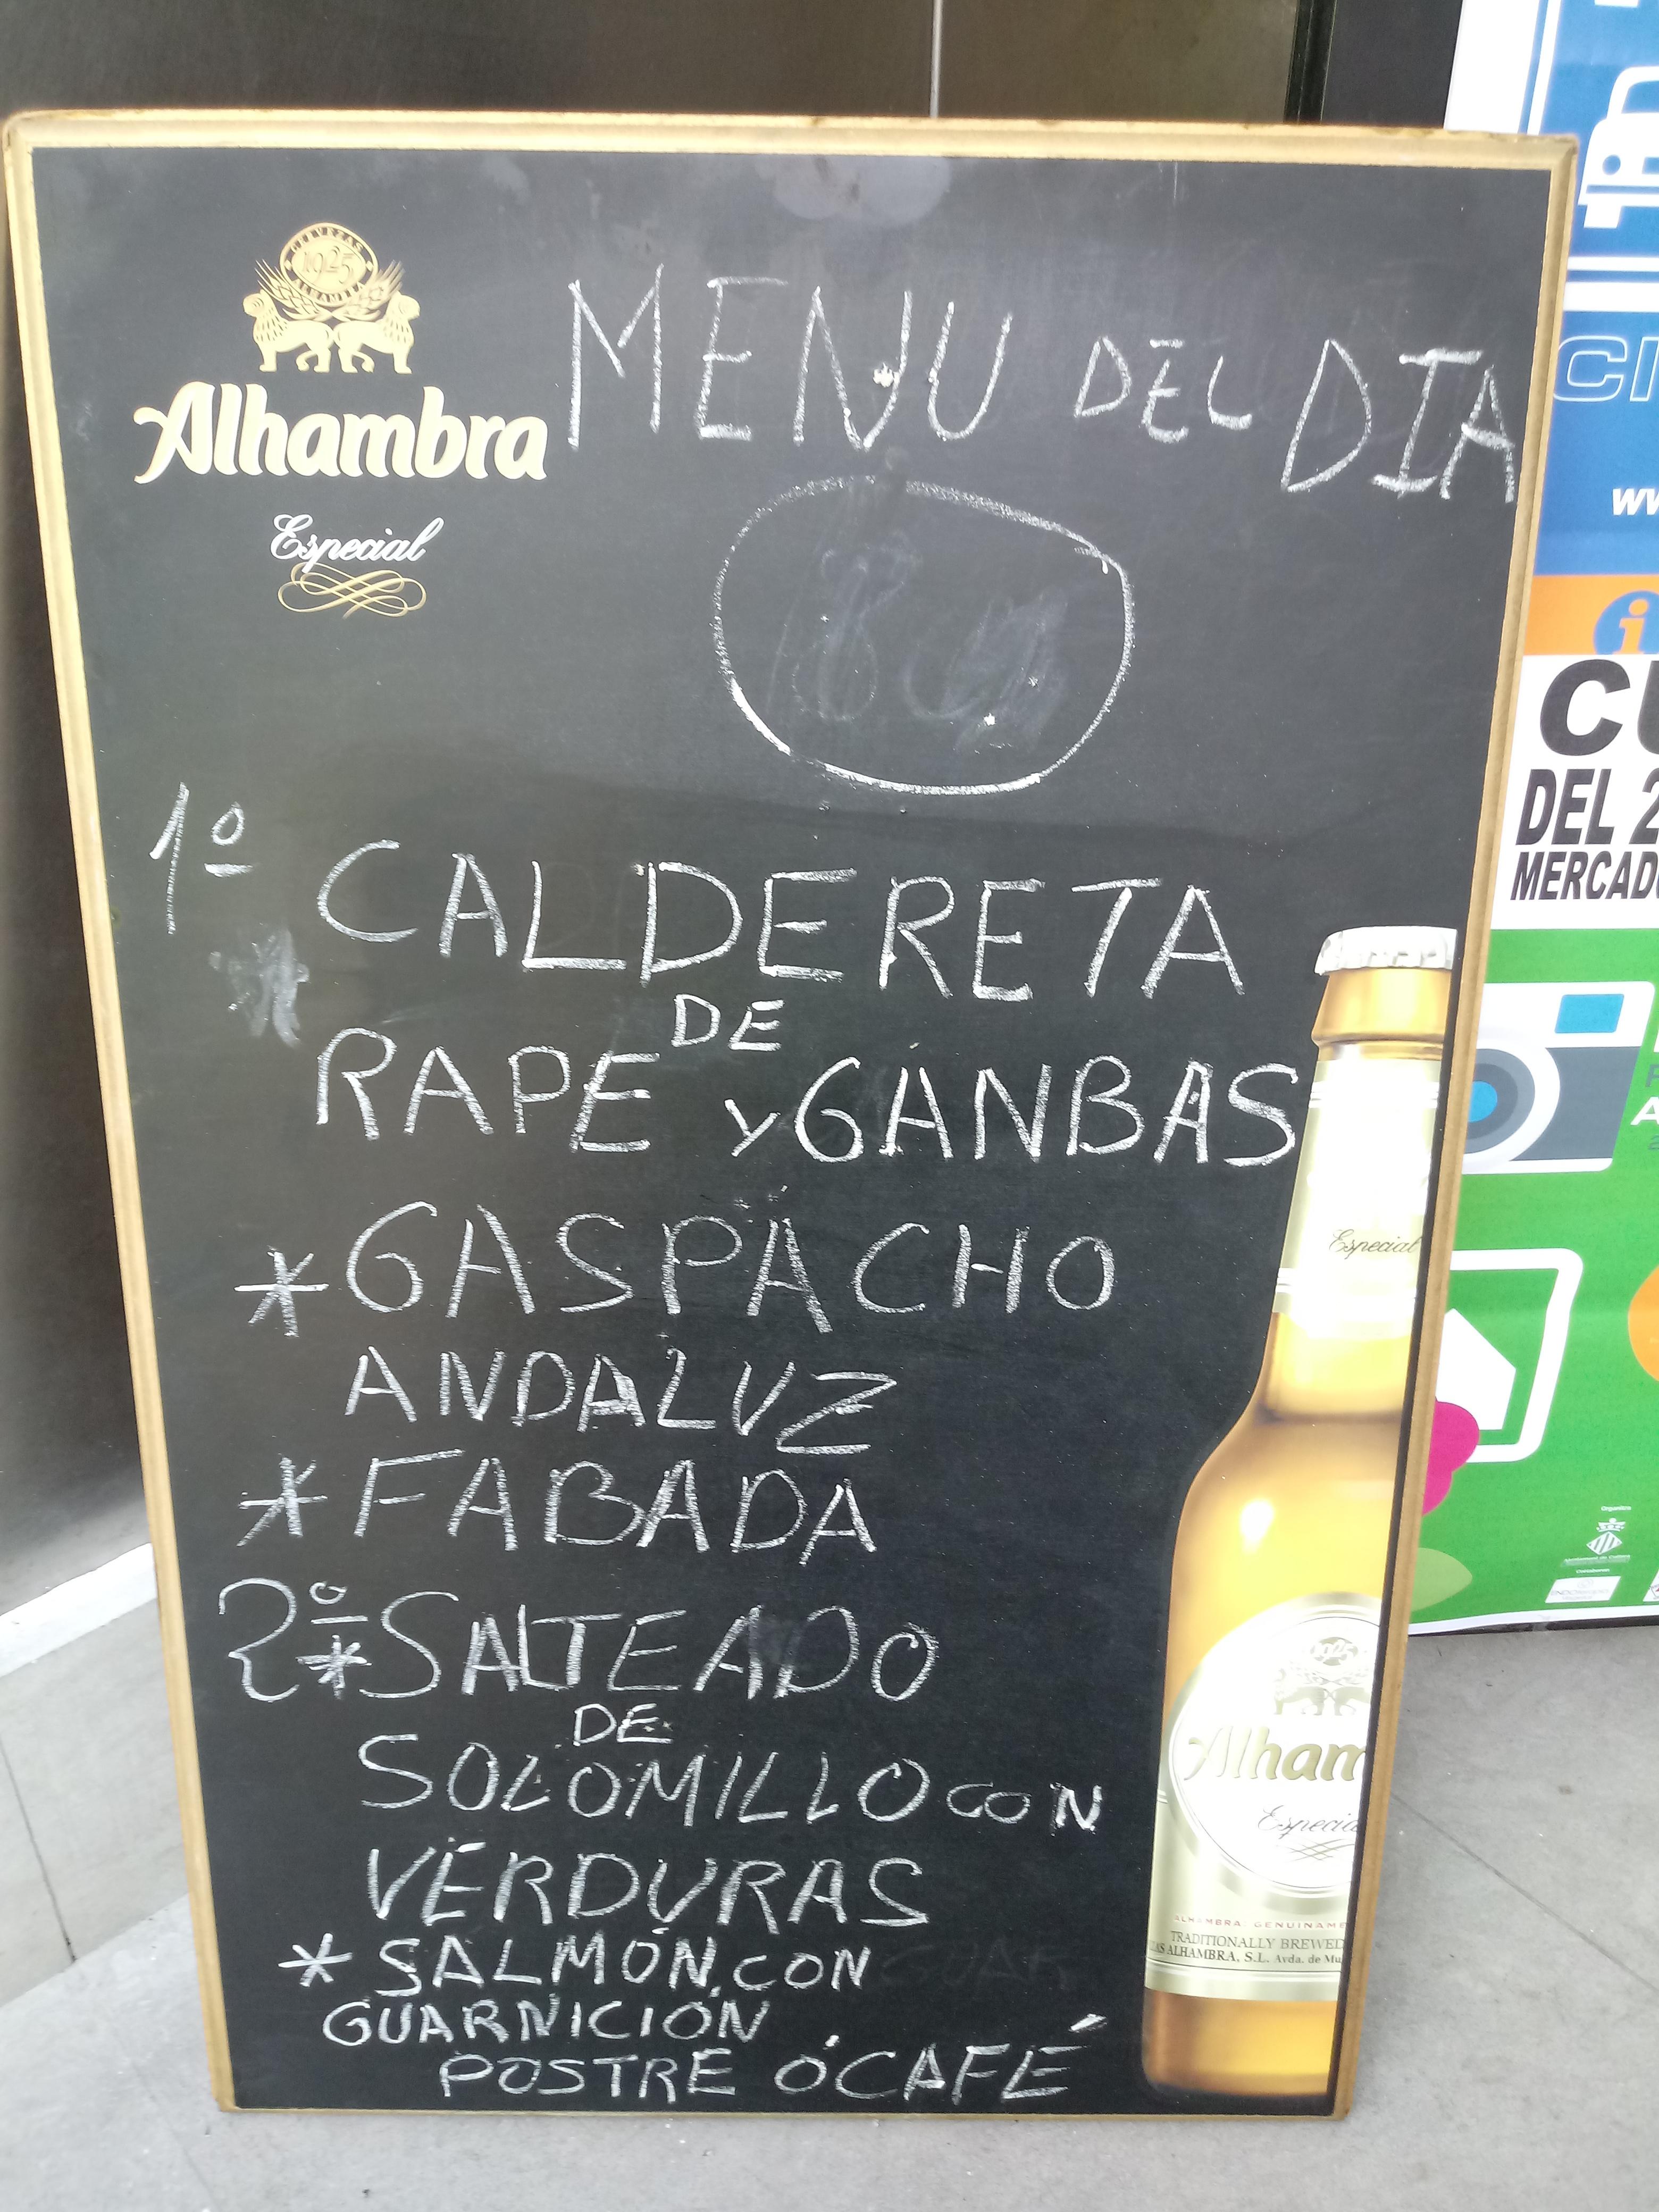 CERVEZAS
1925
ALHAMBRA
Alhambra
Especial
MENU DEL DIA
1º CALDERETA
DE
RAPE Y GANBAS
* GASPACHO
ANDALUZ
* FABADA
2º * SALTEADO
DE
SOLOMILLO CON
VERDURAS
* SALMÓN CON
GUARNICIÓN
POSTRE Ó CAFÉ
Especial
1925
Alham
Especia
ALHAMBRA GENUINAME
TRADITIONALLY BREWED
AS ALHAMBRA, S.L. Avda. de Mu
CI
ww
i
CU
DEL 2
MERCADO